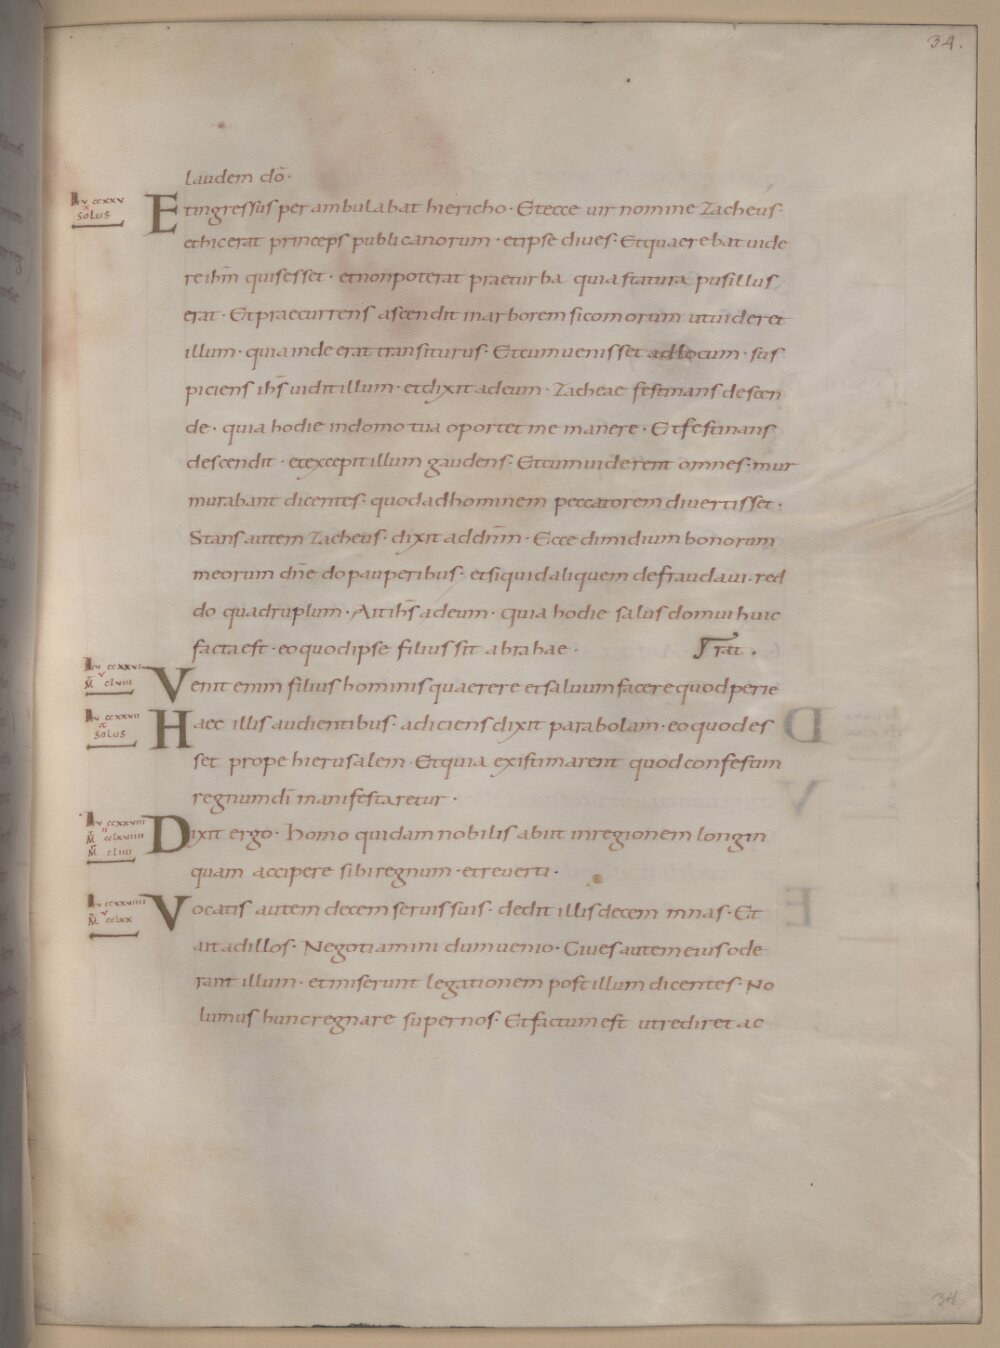 34.
laudem dō·
Ln ccxxv
x
solus
Et ingressus perambulabat hiericho· Et ecce uir nomine Zacheus·
et hic erat princeps publicanorum· et ipse diues· Et quaerebat uide
re ihm̄ quis esset· et non poterat prae turba quia statura pusillus
erat· Et praecurrens ascendit in arborem sicomorum ut uideret
illum· quia inde erat transiturus· Et cum uenisset ad locum· sus
piciens ihs̄ uidit illum· et dixit ad eum· Zacheae festinans descen
de· quia hodie in domo tua oportet me manere· Et festinans
descendit· et excepit illum gaudens· Et cum uiderent omnes· mur
murabant dicentes· quod ad hominem peccatorem diuertisset·
Stans autem Zacheus· dixit ad dnm̄· Ecce dimidium bonorum
meorum dnē do pauperibus· et si quid aliquem defraudaui· red
do quadruplum· Ait ihs̄ ad eum· quia hodie salus domui huic
facta est· eo quod ipse filius sit abrahae· rat·
Ln ccxxvi
v
M̄ clviii
Venit enim filius hominis quaerere et saluum facere quod perie
Ln ccxxvii
x
solus
Haec illis audientibus· adiciens dixit parabolam· eo quod es
set prope hierusalem· Et quia existimarent quod confestim
regnum dī manifestaretur·
Ln ccxxviii
II
M̄ cclxviiii
M̄ cliii
Dixit ergo· homo quidam nobilis abiit in regionem longin
quam accipere sibi regnum· et reuerti·
Ln ccxxviiii
v
M̄ cclxx
Vocatis autem decem seruis suis· dedit illis decem mnas· Et
ait ad illos· Negotiamini dum uenio· Ciues autem eius ode
rant illum· et miserunt legationem post illum dicentes· No
lumus hunc regnare super nos· Et factum est ut rediret ac
34